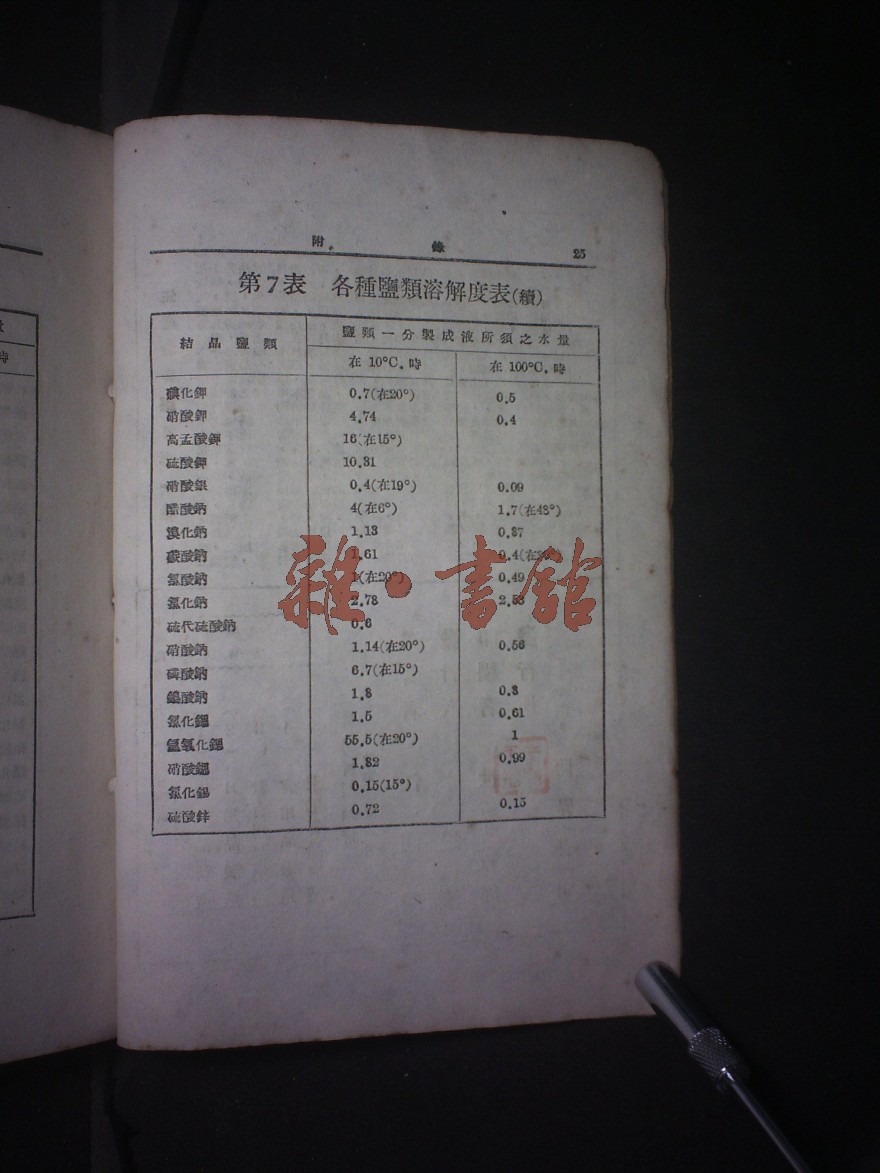 附 錄 25
第7表 各種鹽類溶解度表(續)
結晶鹽類 鹽類一分製成液所須之水量
在 10°C. 時 在 100°C. 時
碘化鉀 0.7(在20°) 0.5
硝酸鉀 4.74 0.4
高孟酸鉀 16(在15°)
硫酸鉀 10.31
硝酸銀 0.4(在19°) 0.09
醋酸鈉 4(在6°) 1.7(在48°)
溴化鈉 1.13 0.87
碳酸鈉 1.61
氯酸鈉 1(在20°) 0.49
氯化鈉 2.78 2.53
硫代硫酸鈉 0.6
硝酸鈉 1.14(在20°) 0.56
磷酸鈉 6.7(在15°)
酸鈉 1.8 0.8
氯化鍶 1.5 0.61
氫氧化鍶 55.5(在20°) 1
硝酸鍶 1.82 0.99
氯化錫 0.15(15°)
硫酸鋅 0.72 0.15
雜·書館
量
時